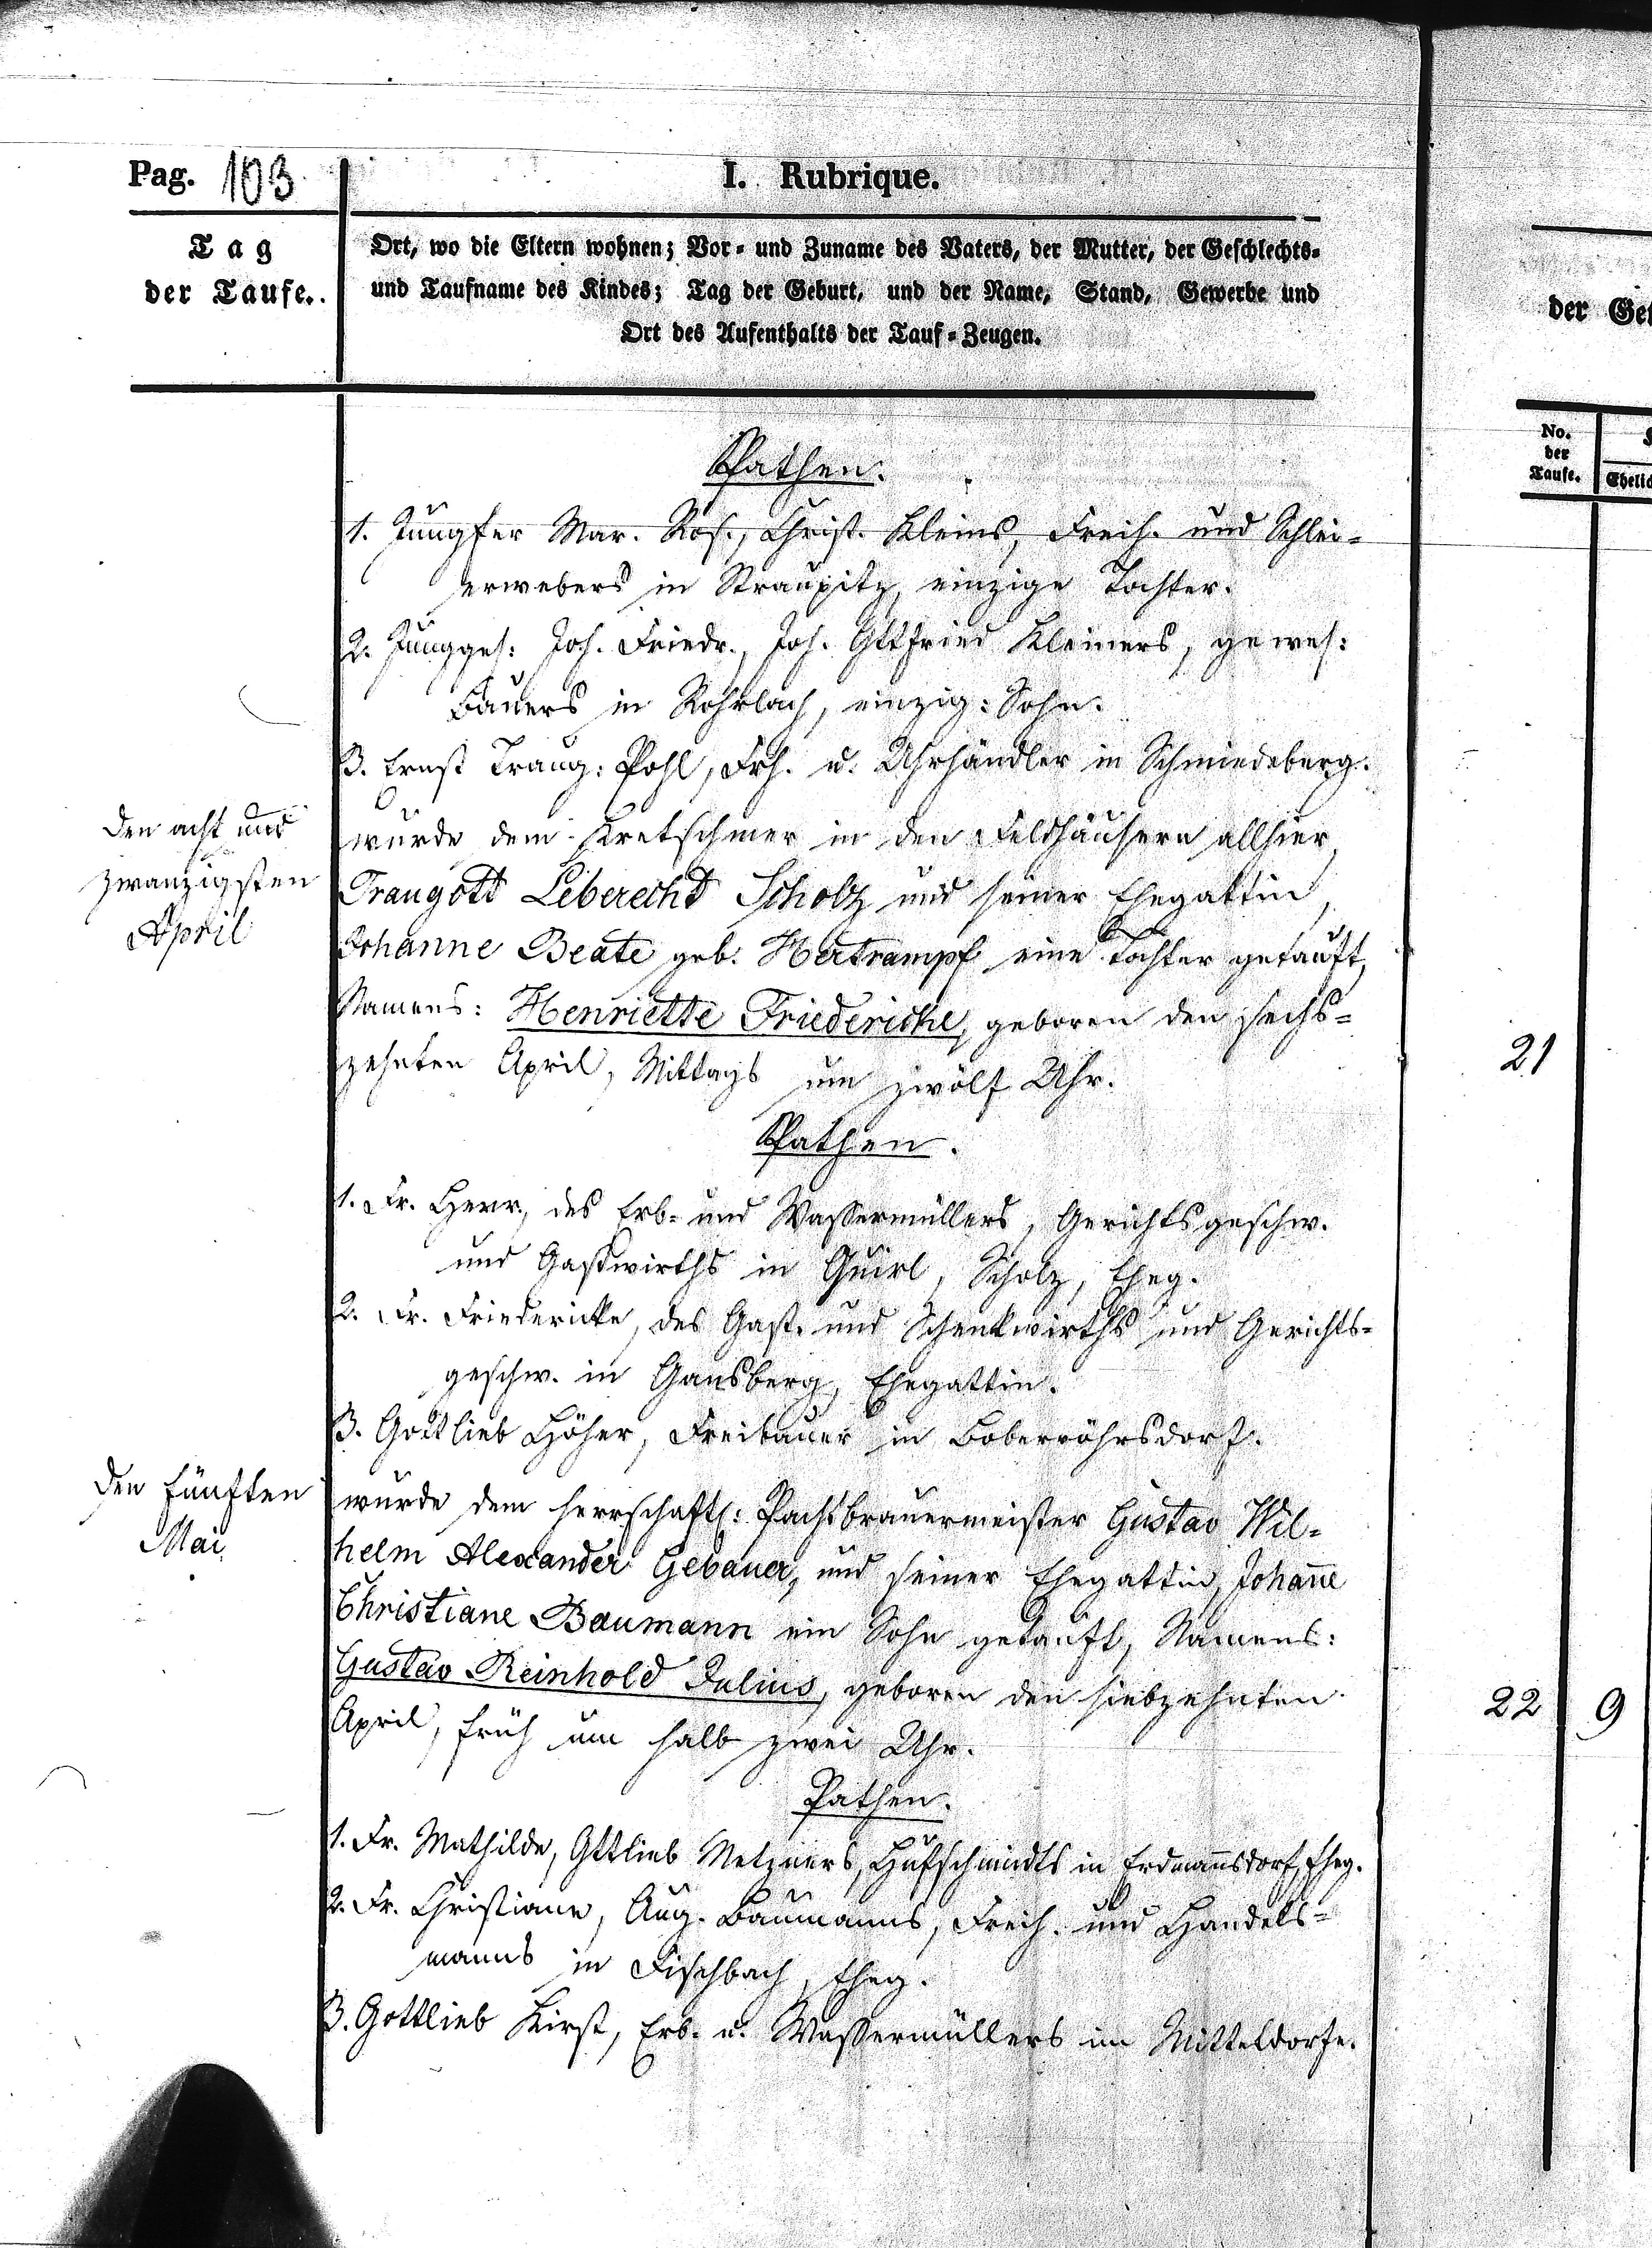 Pag. 103
I. Rubrique.
Tag
der Taufe.
Ort, wo die Eltern wohnen; Vor- und Zuname des Vaters, der Mutter, der Geschlechts-
und Taufname des Kindes; Tag der Geburt, und der Name, Stand, Gewerbe und
Ort des Aufenthalts der Tauf-Zeugen.
der Ge
No.
der
Taufe.
Ehelic
Pathen.
1. Jungfer Mar. Ros., Christ. Kleins, Freih. und Schlei-
erwebers in Straupitz, einzige Tochter.
2. Junggs: Joh. Friedr., Joh. Gttfried Kleiners, gewes:
Bauers in Rohrlach, einzig: Sohn.
3. Ernst Traug: Pohl, Frh. u. Uhrhändler in Schmiedeberg.
den acht und
zwanzigsten
April
wurde dem Kretschmer in den Feldhäusern allhier,
Traugott Leberecht Scholz und seiner Ehegattin,
Johanne Beate geb. Hertrampf eine Tochter getauft,
Namens: Henriette Friedericke, geboren den sechs-
zehnten April, Mittags um zwölf Uhr.
21
Pathen.
1. Fr. Henr., des Erb- und Waßermüllers, Gerichtsgeschw.
und Gastwirths in Quirl, Scholz, Eheg.
2. Fr. Friedericke, des Gast- und Schenkwirths und Gerichts-
geschw. in Gansberg, Ehegattin.
3. Gottlieb Höher, Freibauer in Boberröhrsdorf.
den fünften
Mai
wurde dem herrschaftl: Pachtbrauermeister Gustav Wil-
helm Alexander Gebauer, und seiner Ehegattin, Johañe
Christiane Baumann ein Sohn getauft, Namens:
Gustav Reinhold Julius, geboren den siebzehnten
April, früh um halb zwei Uhr.
22 9
Pathen.
1. Fr. Mathilde, Gttlieb Metzners, Hufschmidts in Erdmañsdorf, Eheg.
2. Fr. Christiane, Aug. Baumanns, Freih. und Handels-
manns in Fischbach, Eheg.
3. Gottlieb Kirst, Erb- u. Waßermüllers im Mitteldorfe.